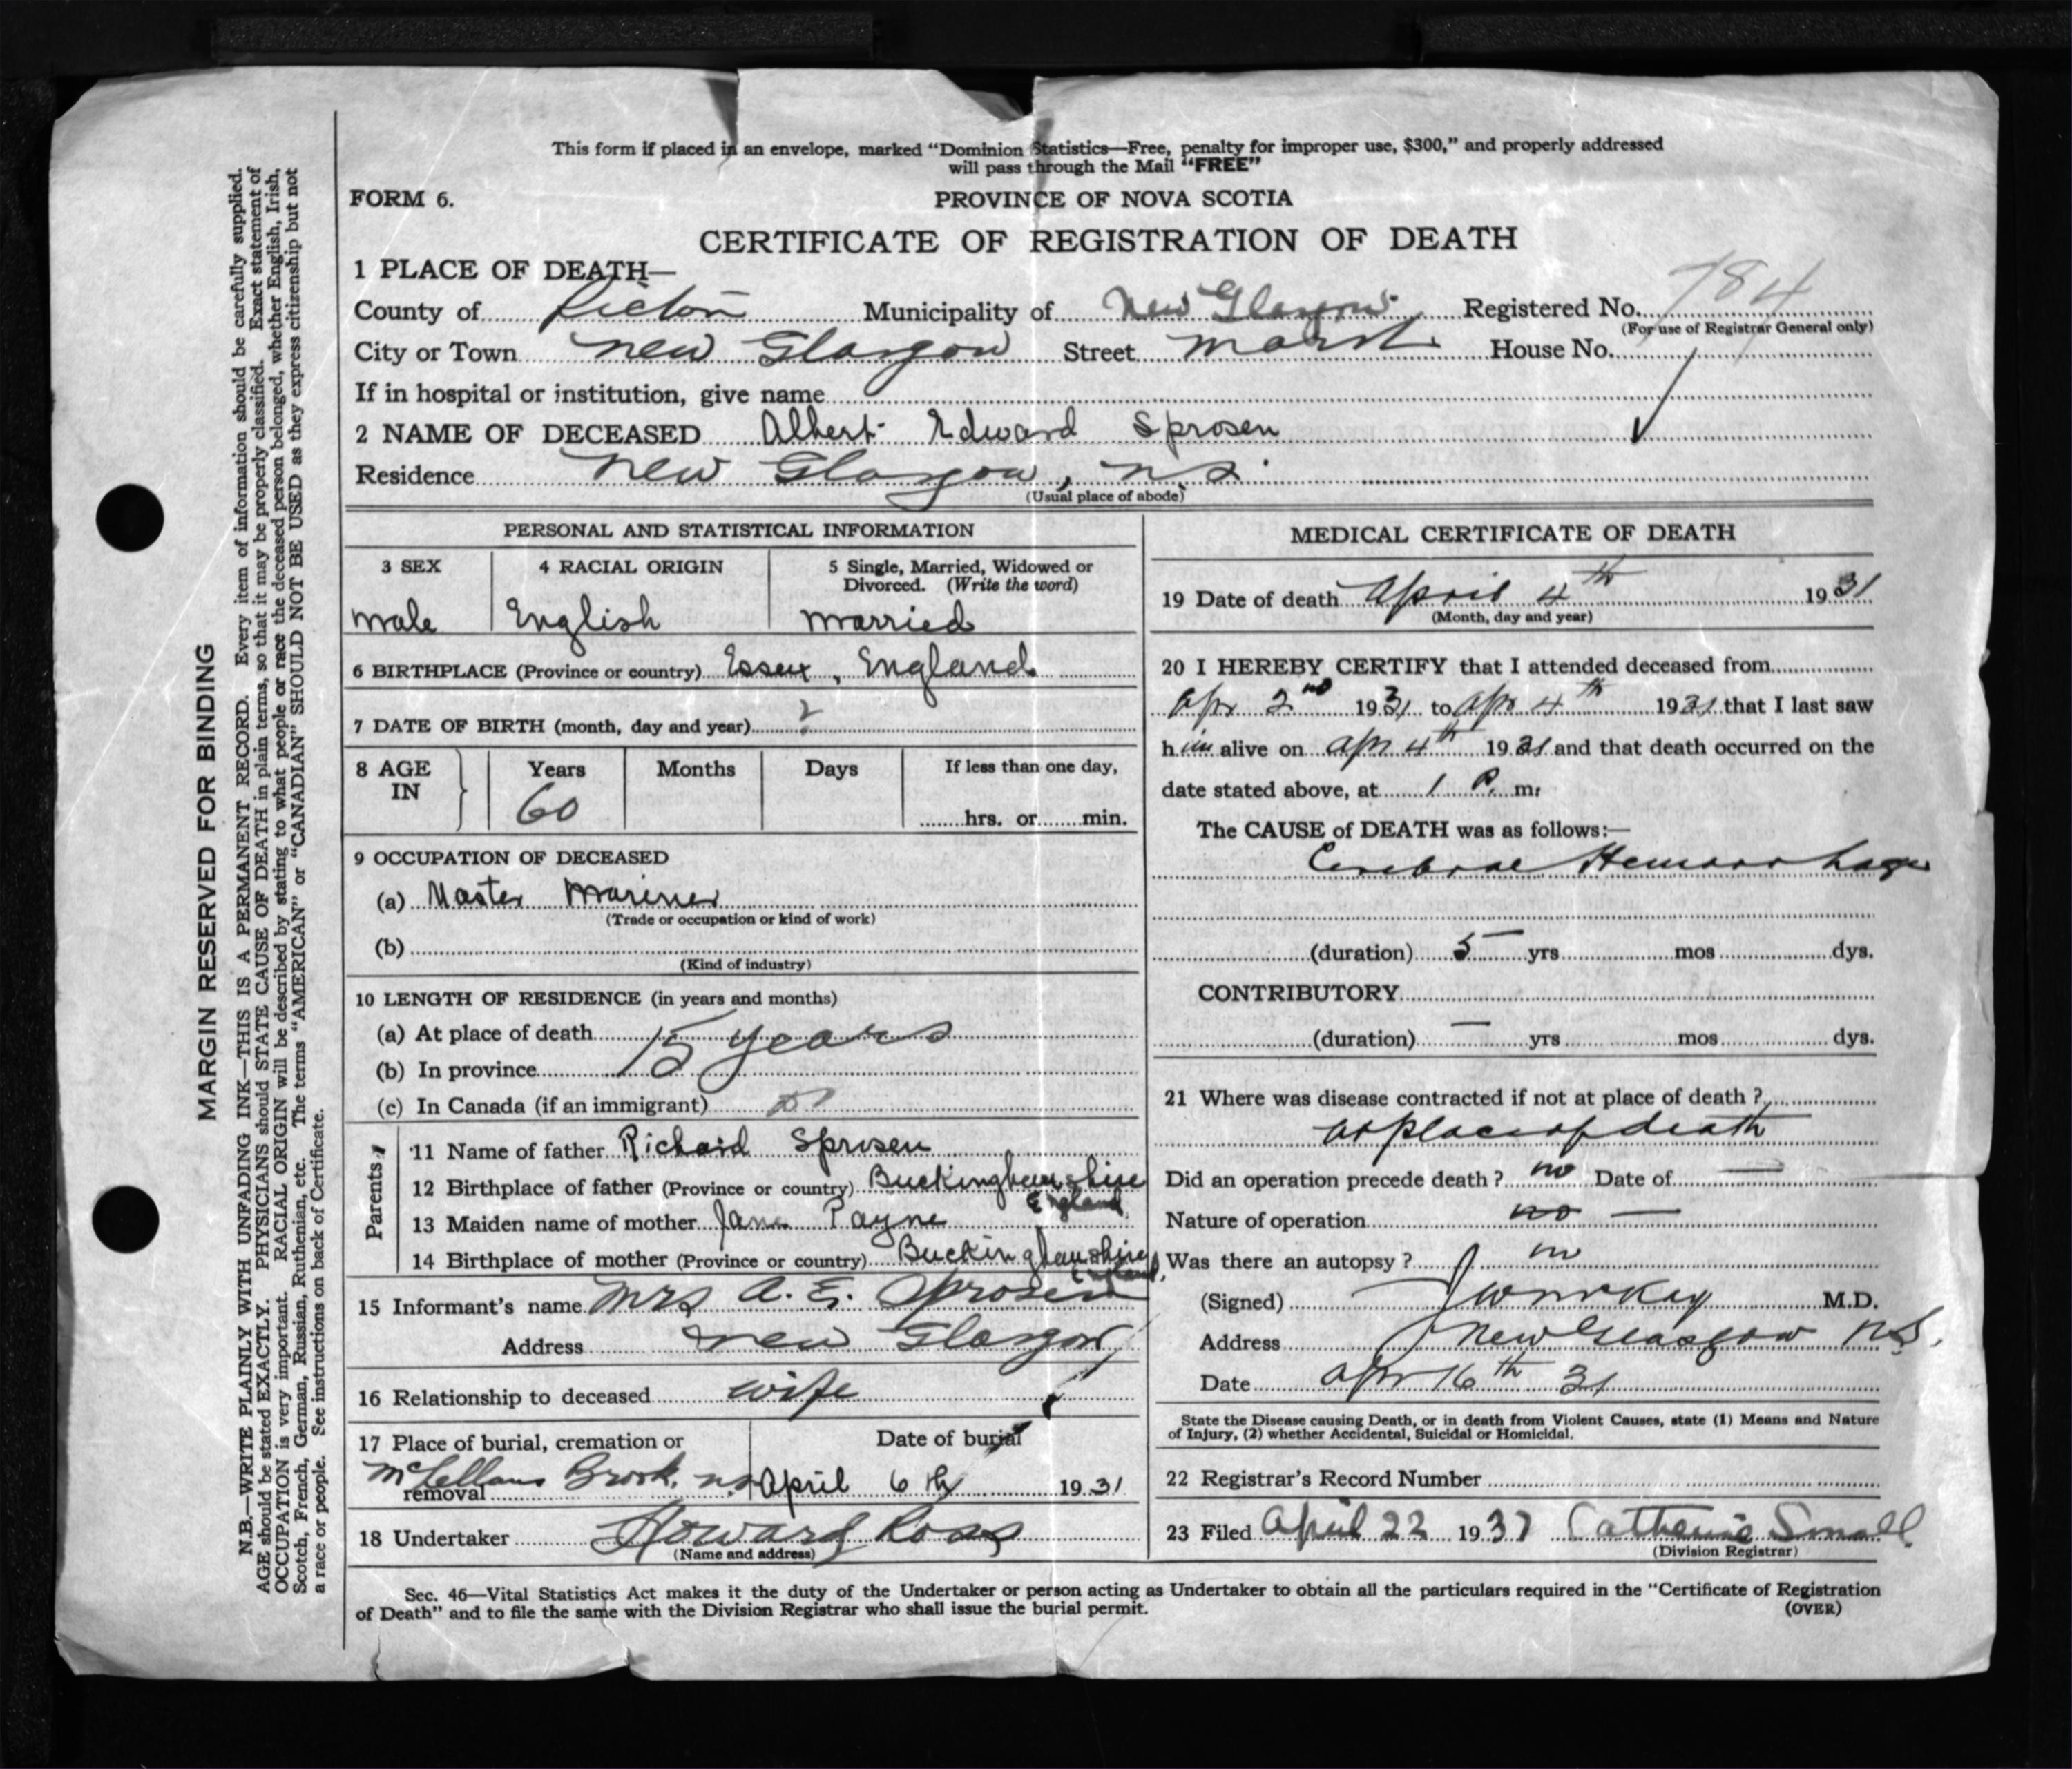 This form if placed in an envelope, marked “Dominion Statistics—Free, penalty for improper use, $300,” and properly addressed
will pass through the Mail “FREE”
FORM 6.
PROVINCE OF NOVA SCOTIA
CERTIFICATE OF REGISTRATION OF DEATH
1 PLACE OF DEATH—
County of Pictou Municipality of New Glasgow Registered No. 784
(For use of Registrar General only)
City or Town New Glasgow Street Marsh House No.
If in hospital or institution, give name
2 NAME OF DECEASED Albert Edward Sprosen
Residence New Glasgow, N.S.
(Usual place of abode)
PERSONAL AND STATISTICAL INFORMATION
3 SEX 4 RACIAL ORIGIN 5 Single, Married, Widowed or
Divorced. (Write the word)
Male English Married
6 BIRTHPLACE (Province or country) Essex, England
7 DATE OF BIRTH (month, day and year) ?
8 AGE IN Years Months Days If less than one day,
60 hrs. or min.
9 OCCUPATION OF DECEASED
(a) Master Mariner
(Trade or occupation or kind of work)
(b)
(Kind of industry)
10 LENGTH OF RESIDENCE (in years and months)
(a) At place of death 15 years
(b) In province
(c) In Canada (if an immigrant)
Parents
11 Name of father Richard Sprosen
12 Birthplace of father (Province or country) Buckinghamshire
England
13 Maiden name of mother Jane Payne
14 Birthplace of mother (Province or country) Buckinghamshire
England.
15 Informant's name Mrs A. E. Sprosen
Address New Glasgow
16 Relationship to deceased wife
17 Place of burial, cremation or Date of burial
McLellans Brook, N.S. April 6th 1931
removal
18 Undertaker Howard Ross
(Name and address)
MEDICAL CERTIFICATE OF DEATH
19 Date of death April 4th 1931
(Month, day and year)
20 I HEREBY CERTIFY that I attended deceased from
Apr 2nd 1931 to Apr 4th 1931 that I last saw
him alive on Apr 4th 1931 and that death occurred on the
date stated above, at 1 P. m.
The CAUSE of DEATH was as follows:—
Cerebral Hemorrhage
(duration) 5 yrs mos dys.
CONTRIBUTORY
(duration) — yrs mos dys.
21 Where was disease contracted if not at place of death ?
at place of death
Did an operation precede death ? no Date of —
Nature of operation no —
Was there an autopsy ? no
(Signed) M.D.
Address New Glasgow N.S.
Date Apr 16th 31
State the Disease causing Death, or in death from Violent Causes, state (1) Means and Nature
of Injury, (2) whether Accidental, Suicidal or Homicidal.
22 Registrar's Record Number
23 Filed April 22 1931 Catherine Small
(Division Registrar)
Sec. 46—Vital Statistics Act makes it the duty of the Undertaker or person acting as Undertaker to obtain all the particulars required in the “Certificate of Registration
of Death” and to file the same with the Division Registrar who shall issue the burial permit.
(OVER)
MARGIN RESERVED FOR BINDING
N.B.—WRITE PLAINLY WITH UNFADING INK—THIS IS A PERMANENT RECORD. Every item of information should be carefully supplied.
AGE should be stated EXACTLY. PHYSICIANS should STATE CAUSE OF DEATH in plain terms, so that it may be properly classified. Exact statement of
OCCUPATION is very important. RACIAL ORIGIN will be described by stating to what people or race the deceased person belonged, whether English, Irish,
Scotch, French, German, Russian, Ruthenian, etc. The terms “AMERICAN” or “CANADIAN” SHOULD NOT BE USED as they express citizenship but not
a race or people. See instructions on back of Certificate.